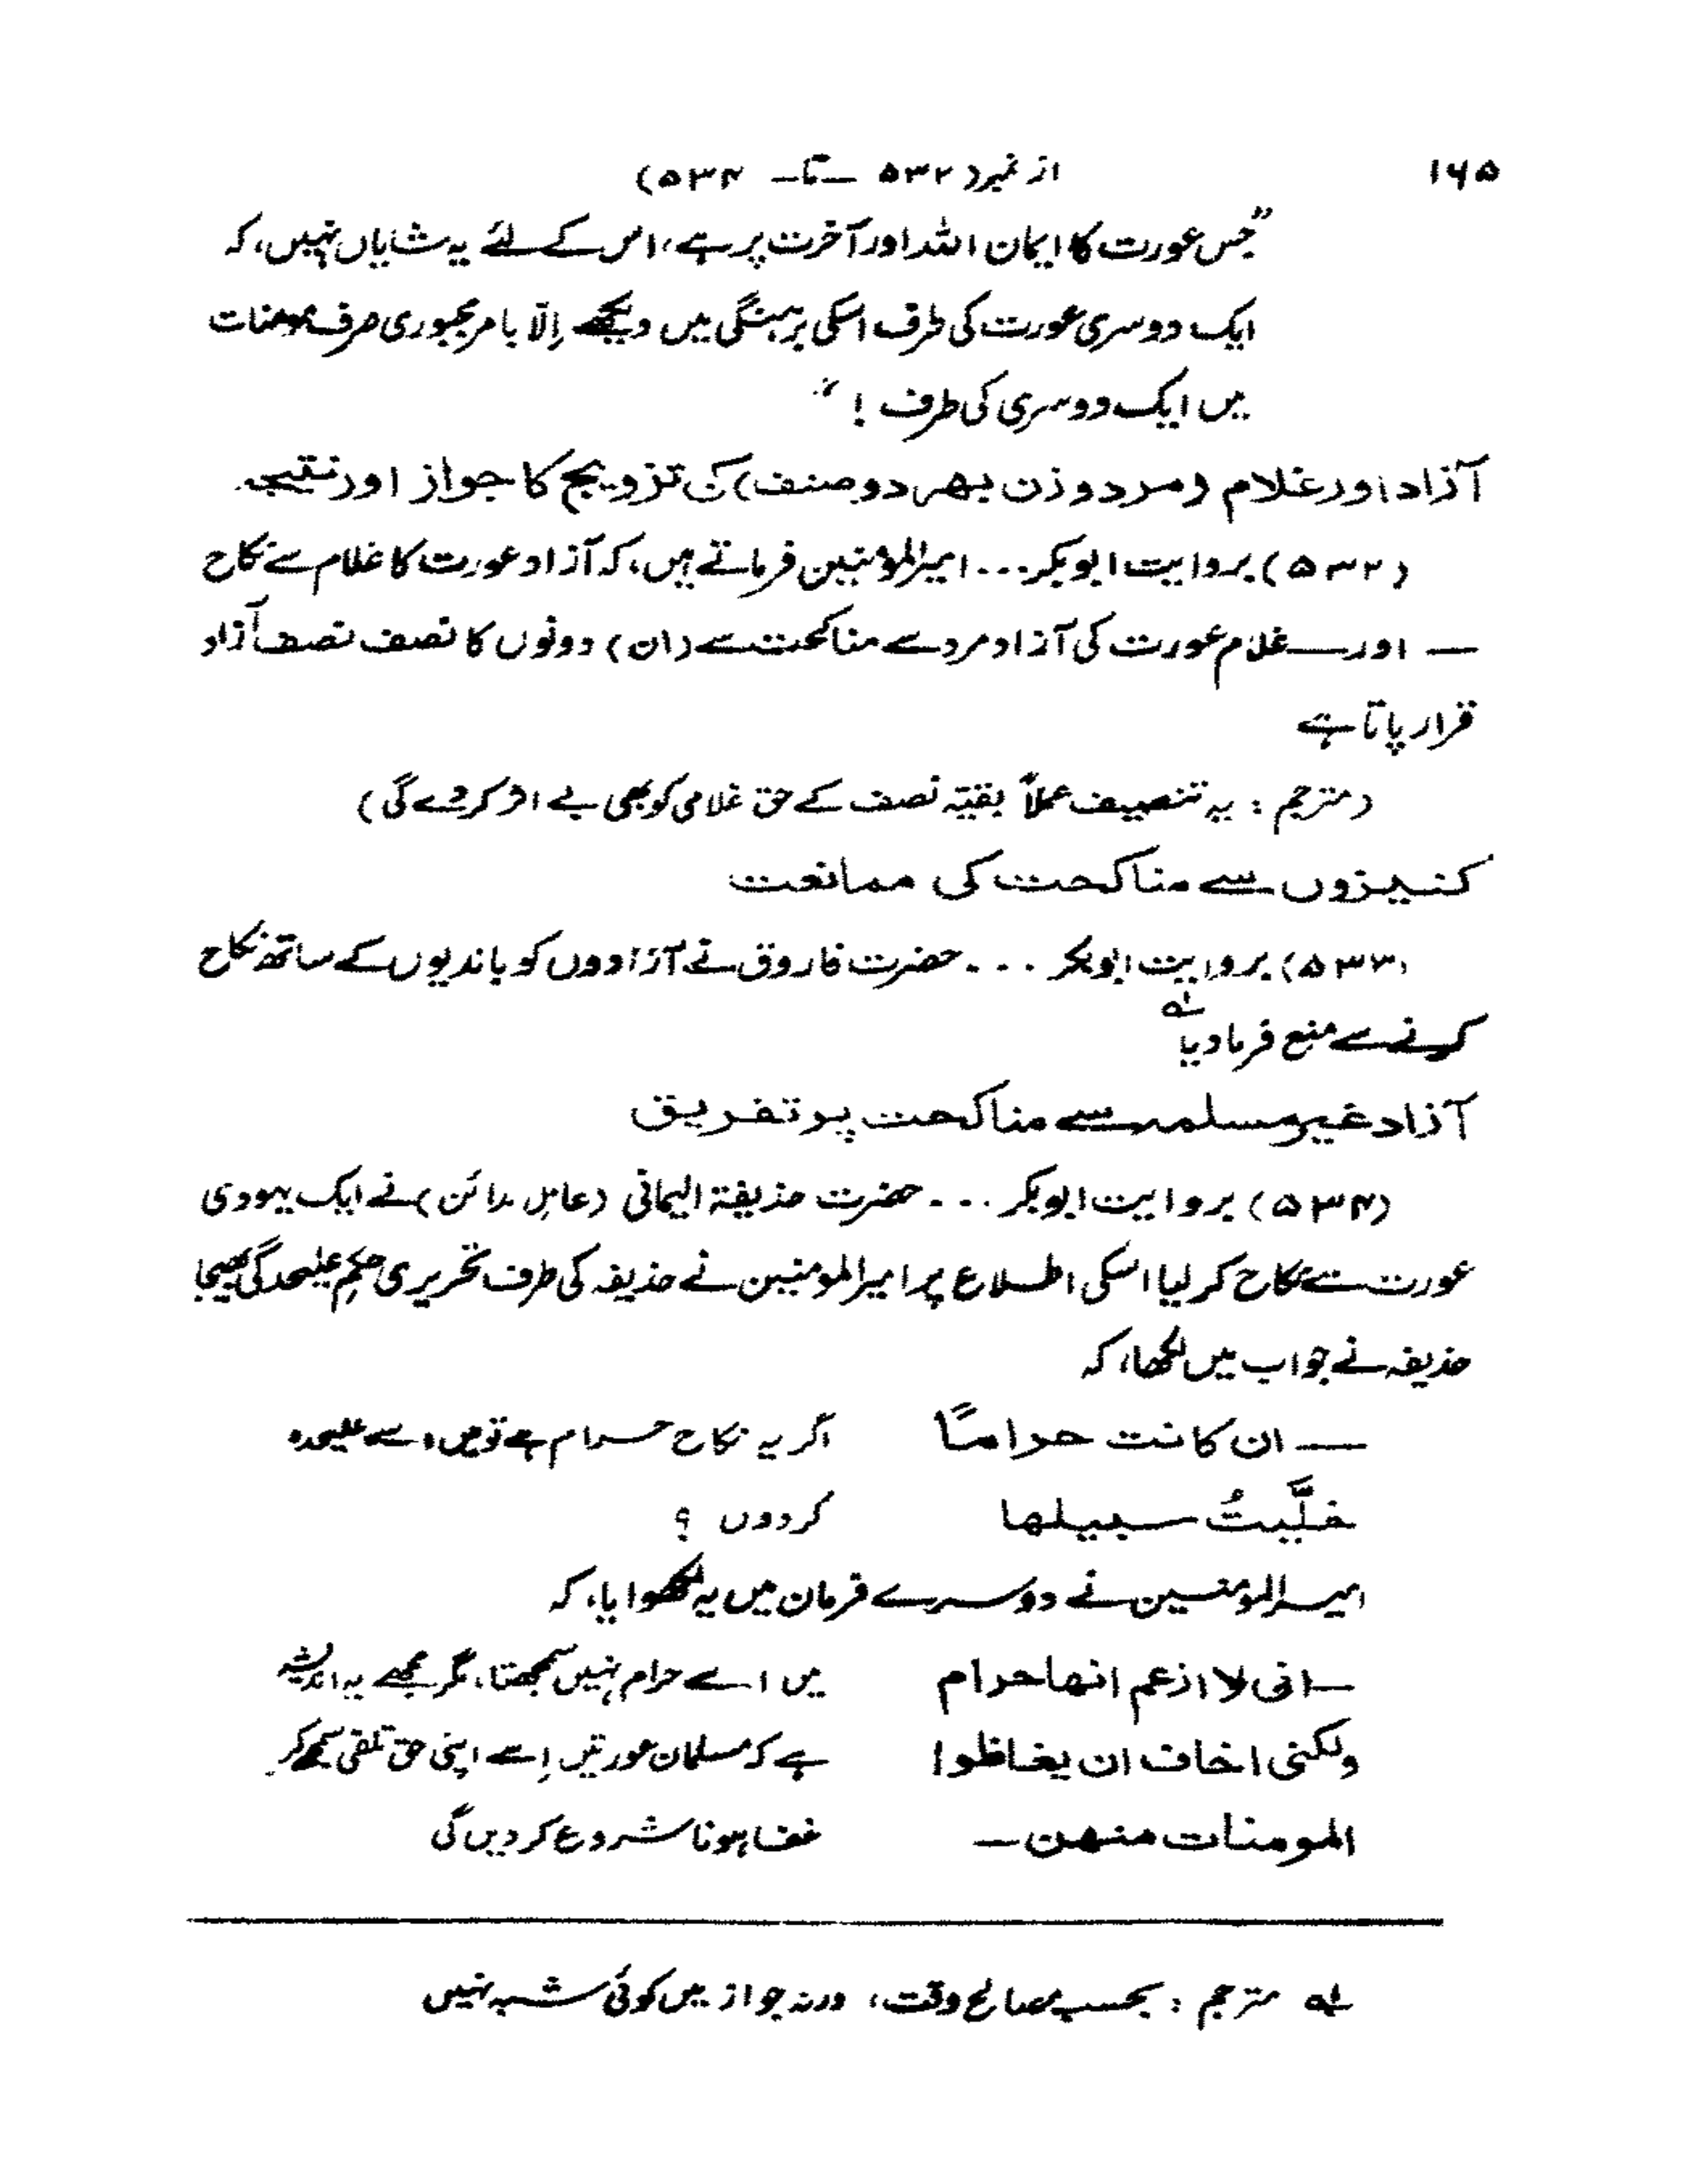 ۱۶۵
از نمبر (۵۳۲ — تا — ۵۳۴)
"جس عورت کا ایمان اللہ اور آخرت پر ہے، اس کے لئے یہ شایاں نہیں، کہ
ایک دوسری عورت کی طرف اسکی برہنگی میں دیکھے اِلّا بامر مجبوری صرف مومنات
میں ایک دوسری کی طرف !"
آزاد اور غلام (مرد و زن بھر دو صنف) کی تزویج کا جواز اور نتیجہ
(۵۳۲) بروایت ابوبکر... امیرالمؤمنین فرماتے ہیں، کہ آزاد عورت کا غلام سے نکاح
— اور — غلام عورت کی آزاد مرد سے مناکحت سے (ان) دونوں کا نصف نصف آزاد
قرار پاتا ہے
(مترجم : یہ تنصیف عملاً بقیّہ نصف کے حق غلامی کو بھی بے اثر کر دے گی)
کنیزوں سے مناکحت کی ممانعت
(۵۳۳) بروایت ابوبکر ... حضرت فاروق نے آزادوں کو باندیوں کے ساتھ نکاح
کرنے سے منع فرما دیا ؎۱
آزاد غیر مسلمہ سے مناکحت پر تفریق
(۵۳۴) بروایت ابوبکر ... حضرت حذیفۃ الیمانی (عامل مدائن) نے ایک یہودی
عورت سے نکاح کر لیا اسکی اطلاع پر امیرالمومنین نے حذیفہ کی طرف تحریری حکمِ علیحدگی بھیجا
حذیفہ نے جواب میں لکھا، کہ
— ان کانت حراماً اگر یہ نکاح حرام ہے تو میں اسے علیحدہ
خلَّیتُ سبیلھا کر دوں ؟
امیرالمؤمنین نے دوسرے فرمان میں یہ لکھوایا، کہ
— انی لا ازعم انھا حرام میں اسے حرام نہیں سمجھتا، مگر مجھے یہ اندیشہ
ولکنی اخاف ان یغاظوا ہے کہ مسلمان عورتیں اِسے اپنی حق تلفی سمجھ کر
المومنات منھن — خفا ہونا شروع کر دیں گی
؎۱ مترجم : بحسب مصالح وقت، ورنہ جواز میں کوئی شبہ نہیں